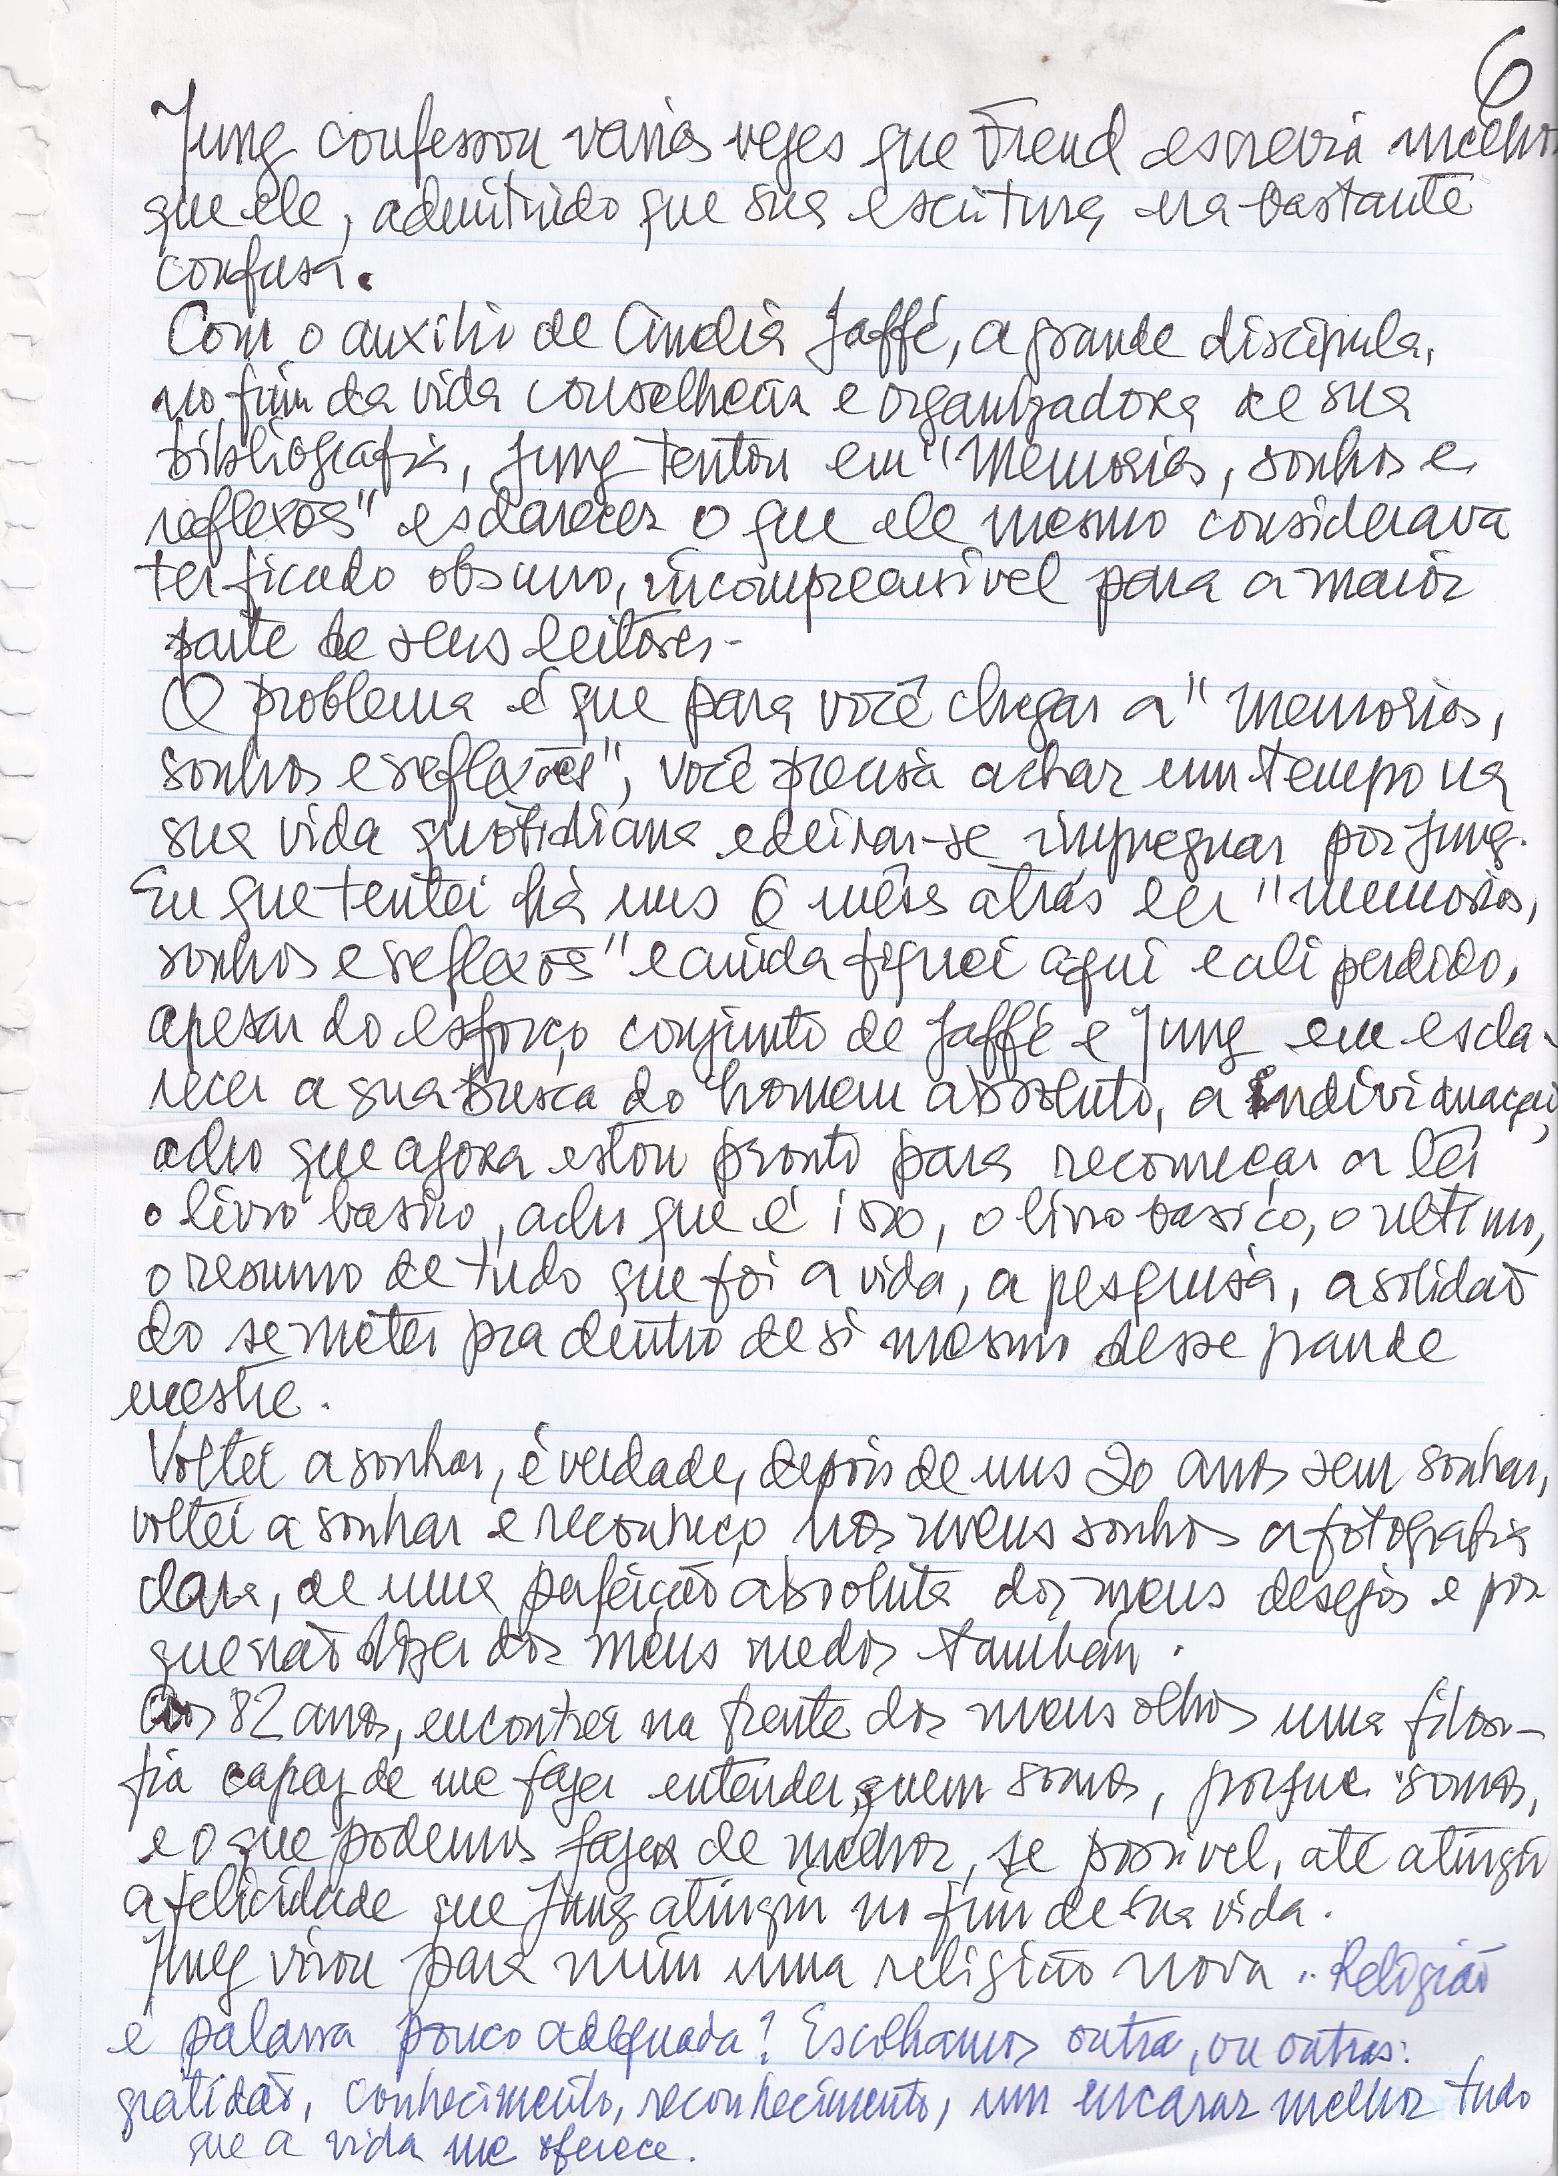 6
Jung confessou varias vezes que Freud escrevia melhor
que ele, admitindo que sua escritura era bastante
confusa.
Com o auxilio de Aniela Jaffé, a grande discipula,
no fim da vida conselheira e organizadora de sua
bibliografia, Jung tentou em "Memorias, sonhos e
reflexões" esclarecer o que ele mesmo considerava
ter ficado obscuro, incompreensivel para a maior
parte de seus leitores-
O problema é que para você chegar a "memorias,
sonhos e reflexões", você precisa achar um tempo na
sua vida quotidiana e deixar-se impregnar por Jung.
Eu que tentei há uns 6 mêses atrás ler "memorias,
sonhos e reflexões" e ainda fiquei aqui e ali perdido,
apesar do esforço conjunto de Jaffé e Jung em escla-
recer a sua busca do homem absoluto, a individuação,
acho que agora estou pronto para recomeçar a ler
o livro basico, acho que é isso, o livro basico, o ultimo,
o resumo de tudo que foi a vida, a pesquisa, a solidão
do se meter pra dentro de si mesmo desse grande
mestre.
Voltei a sonhar, é verdade, depois de uns 20 anos sem sonhar,
voltei a sonhar e reconheço nos meus sonhos a fotografia
clara, de uma perfeição absoluta dos meus desejos e por
que não dizer dos meus medos também.
Aos 82 anos, encontrei na frente dos meus olhos uma filoso-
fia capaz de me fazer entender quem somos, porque somos,
e o que podemos fazer de melhor, se possivel, até atingir
a felicidade que Jung atingiu no fim de sua vida.
Jung virou para mim uma religião nova.. Religião
é palavra pouco adequada? Escolhamos outra, ou outras:
gratidão, conhecimento, reconhecimento, um encarar melhor tudo
que a vida me oferece.